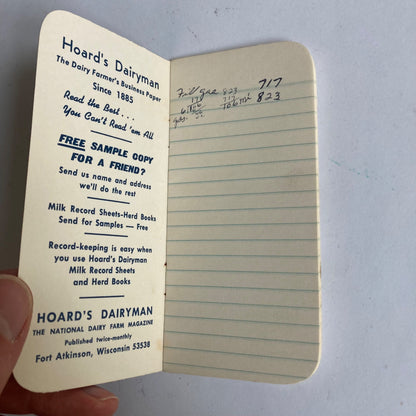 Hoard's Dairyman
The Dairy Farmer's Business Paper
Since 1885
Read the Best...
You Can't Read 'em All
FREE SAMPLE COPY
FOR A FRIEND?
Send us name and address
we'll do the rest
Milk Record Sheets-Herd Books
Send for Samples — Free
Record-keeping is easy when
you use Hoard's Dairyman
Milk Record Sheets
and Herd Books
HOARD'S DAIRYMAN
THE NATIONAL DAIRY FARM MAGAZINE
Published twice-monthly
Fort Atkinson, Wisconsin 53538
Fill gas 823 717
717 823